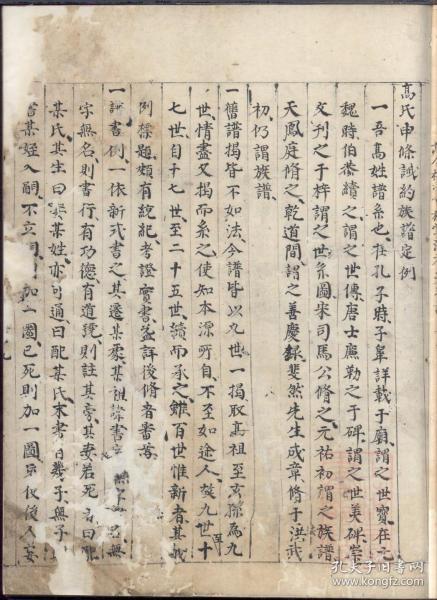 高氏申條誡約族譜定例
一吾高姓譜系也在孔子時子羣詳載于廟謂之世寶在元
魏時伯恭續之謂之世傳唐士廉勒之于碑謂之世美碑宗
文刊之于梓謂之世系圖宋司馬公脩之元祐初謂之族譜
天鳳庭脩之乾道間謂之善慶錄斐然先生成章脩于洪武
初仍謂族譜
一舊譜揭皆不如法今譜皆以九世一揭取高祖至玄孫為九
世情盡又揭而系之使知本源所自不至如途人焚九世十
七世自十七世至二十五世續而承之雖百世惟新者其
例標題頗有統紀考證實書益詳後脩者審焉
一譜書例一依新式書之其遷某處某祖諱書
字無名則書行有功德有道號則註其旁其妻若死 曰
某氏其生曰娶某姓亦可通曰配某氏末書曰幾子無子
書某姪入嗣不立 加一圈已死則加一圈
孔夫子旧书网
www.kongfz.com